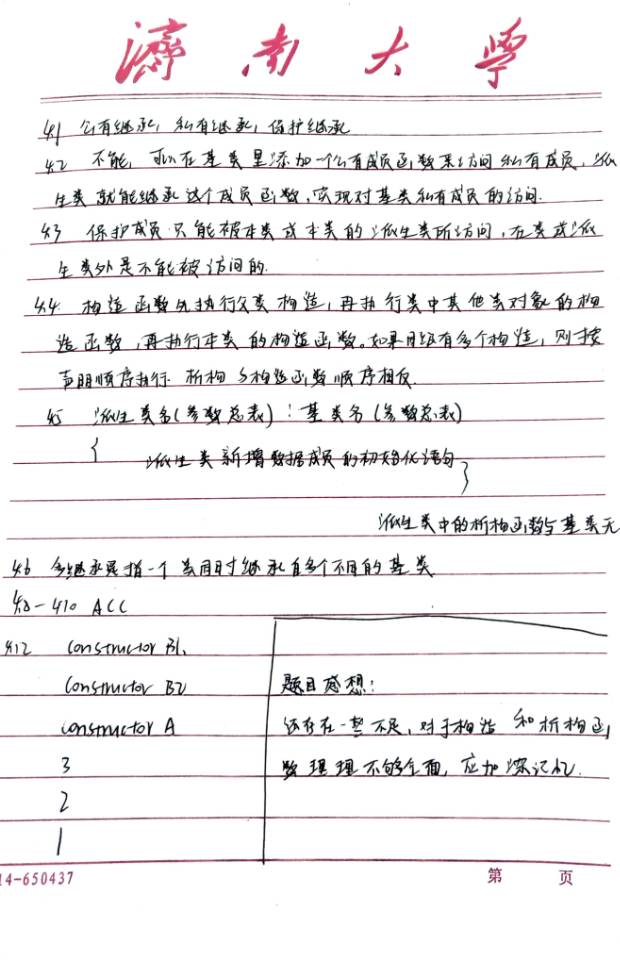 濟南大學
4.1 公有继承, 私有继承, 保护继承
4.2 不能, 可以在基类里添加一个公有成员函数来访问私有成员, 派
生类就能继承这个成员函数, 实现对基类私有成员的访问.
4.3 保护成员只能被本类或本类的派生类所访问, 在类或派
生类外是不能被访问的.
4.4. 构造函数先执行父类构造, 再执行类中其他类对象的构
造函数, 再执行本类的构造函数。如果有多个构造, 则按
声明顺序执行. 析构与构造函数顺序相反
4.5 派生类名(参数总表): 基类名(参数总表)
{
派生类新增数据成员的初始化语句
}
派生类中的析构函数与基类无
4.6 多继承是指一个类同时继承自多个不同的基类
4.8-4.10 ACC
4.12 constructor B1.
constructor B2
constructor A
3
2
1
题目感想:
还存在一些不足, 对于构造和析构函
数理理不够全面, 应加深记忆.
14-650437
第 页